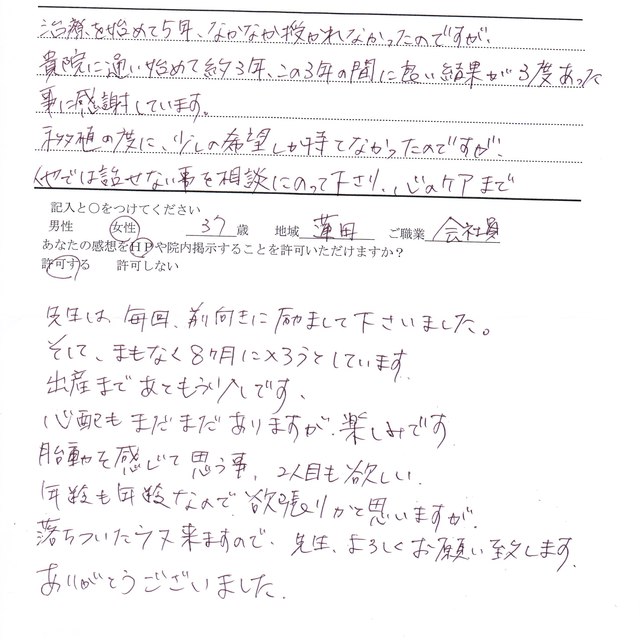 治療を始めて5年、なかなか授かれなかったのですが、
貴院に通い始めて約3年、この3年の間に良い結果が3度あった
事に感謝しています。
移植の度に、少しの希望しか持てなかったのですが、
では話せない事を相談にのって下さり、心のケアまで
記入と〇をつけてください
男性 女性 37歳 地域 蓮田 ご職業 会社員
あなたの感想をHPや院内掲示することを許可いただけますか?
許可する 許可しない
先生は、毎回、前向きに励まして下さいました。
そして、まもなく8ヶ月に入ろうとしています
出産まであともう少しです、
心配もまだまだありますが、楽しみです
胎動を感じて思う事、2人目も欲しい、
年齢も年齢なので、欲張りかと思いますが、
落ちついたラ又来ますので、先生、よろしくお願い致します、
ありがとうございました、